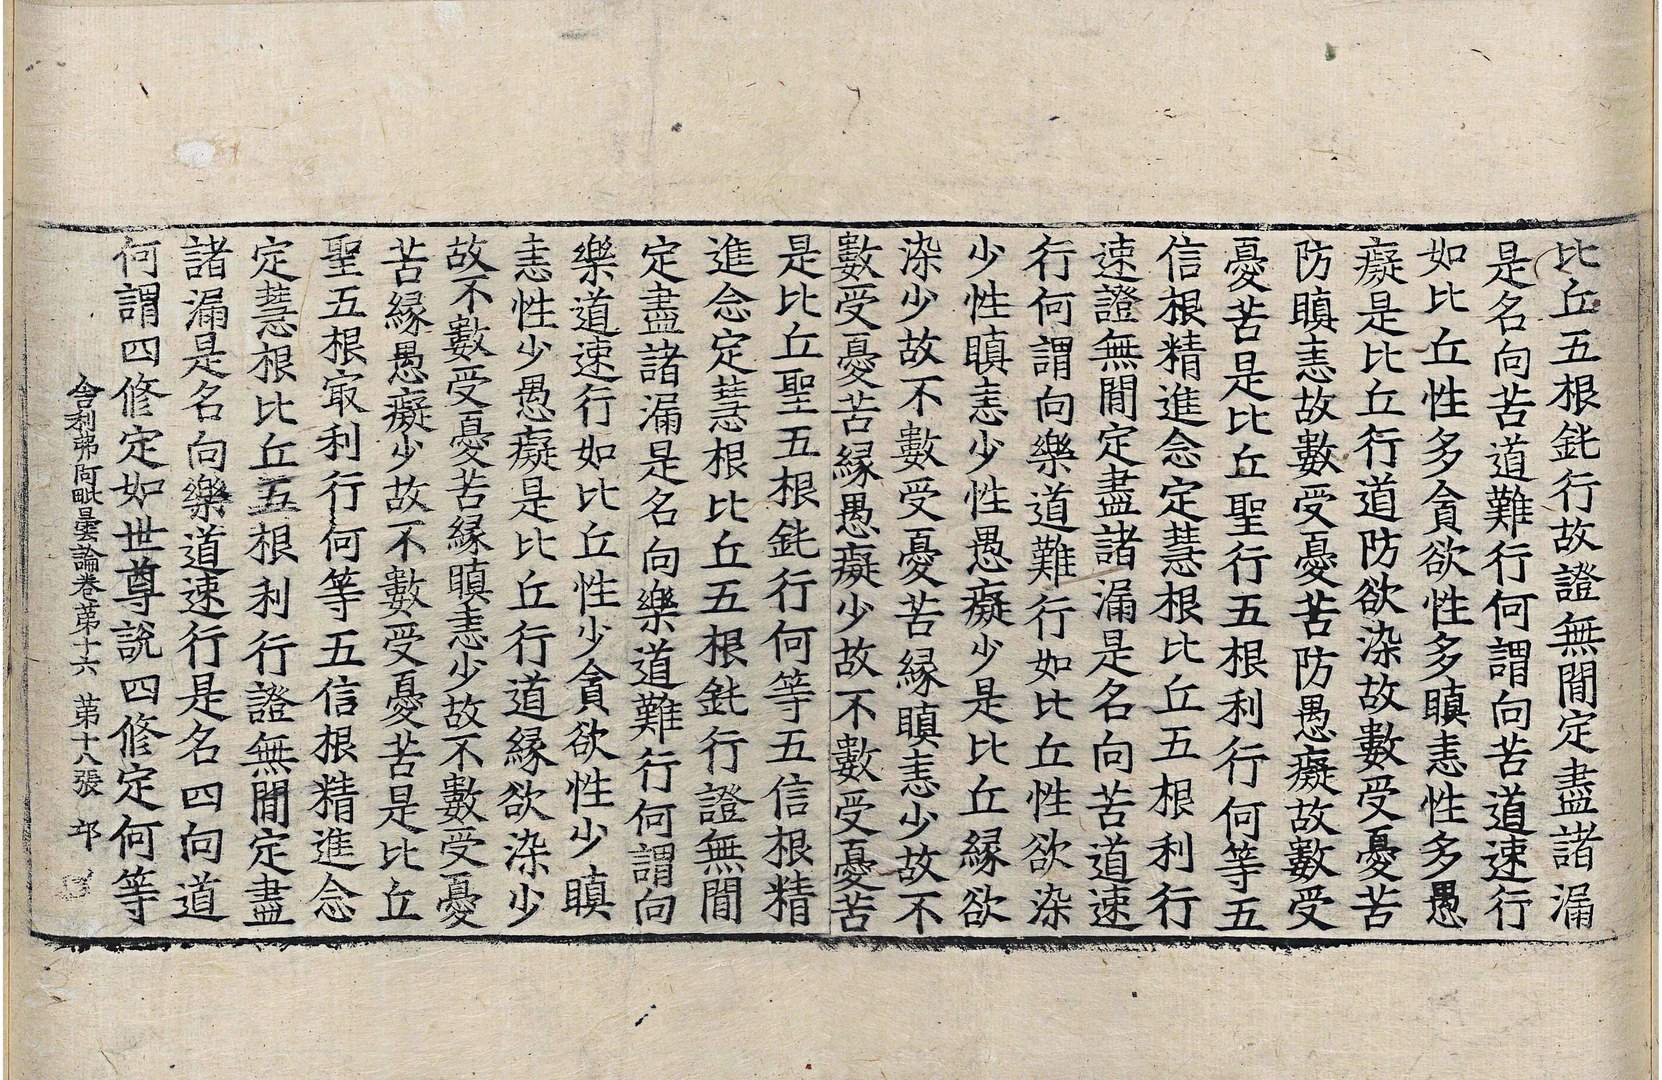 比丘五根鈍行故證無閒定盡諸漏
是名向苦道難行何謂向苦道速行
如比丘性多貪欲性多瞋恚性多愚
癡是比丘行道防欲染故數受憂苦
防瞋恚故數受憂苦防愚癡故數受
憂苦是比丘聖行五根利行何等五
信根精進念定慧根比丘五根利行
速證無閒定盡諸漏是名向苦道速
行何謂向樂道難行如比丘性欲染
少性瞋恚少性愚癡少是比丘緣欲
染少故不數受憂苦緣瞋恚少故不
數受憂苦緣愚癡少故不數受憂苦
是比丘聖五根鈍行何等五信根精
進念定慧根比丘五根鈍行證無閒
定盡諸漏是名向樂道難行何謂向
樂道速行如比丘性少貪欲性少瞋
恚性少愚癡是比丘行道緣欲染少
故不數受憂苦緣瞋恚少故不數受憂
苦緣愚癡少故不數受憂苦是比丘
聖五根㝡利行何等五信根精進念
定慧根比丘五根利行證無閒定盡
諸漏是名向樂道速行是名四向道
何謂四修定如世尊說四修定何等
舍利弗阿毗曇論卷第十六 第十八張 邙